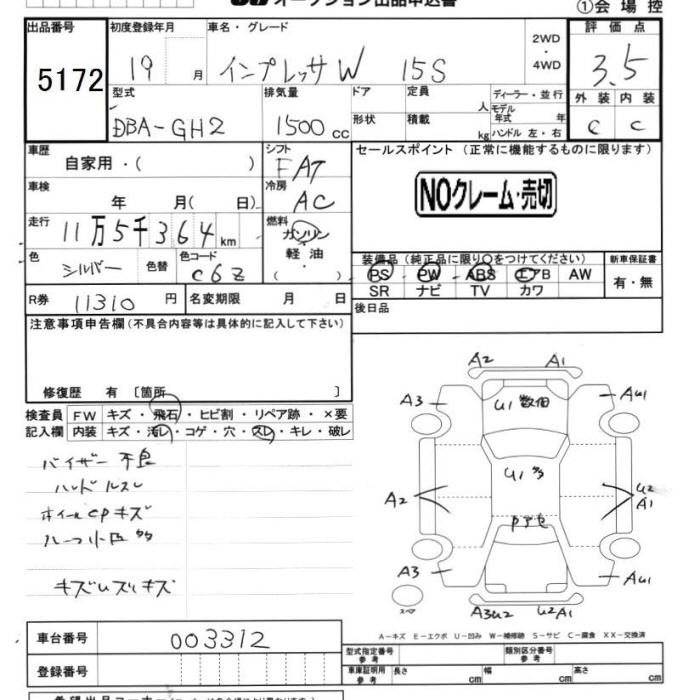 オークション出品申込書
①会場控
出品番号 初度登録年月 車名・グレード 評価点
5172 19 月 インプレッサW 15S 2WD・4WD 3.5
型式 排気量 ドア 定員 人 ディーラー・並行 外装 内装
モデル年式 年
DBA-GH2 1500 cc 形状 積載 kg ハンドル 左・右 C C
車歴 シフト セールスポイント (正常に機能するものに限ります)
自家用・( ) FAT
車検 冷房
年 月( 日) AC NOクレーム・売切
走行 燃料
11万5千364 km ガソリン
軽油
( )
色 色替 色コード 装備品(純正品に限り○をつけてください) 新車保証書
シルバー C6Z PS PW ABS エアB AW 有・無
SR ナビ TV カワ
R券 11310 円 名変期限 月 日 後日品
注意事項申告欄(不具合内容等は具体的に記入して下さい)
修復歴 有 〔箇所 〕
検査員 FW キズ・飛石・ヒビ割・リペア跡・×要
記入欄 内装 キズ・汚レ・コゲ・穴・スレ・キレ・破レ
バイザー不良
ハンドルスレ
ホイールCPキズ
キズUズリキズ
A2 A1
A3 U1 数個 AU1
U1 多
A2 U2
A1
A3 AU1
スペア
A3U2 U2A1
A-キズ E-エクボ U-凹み W-補修跡 S-サビ C-腐食 XX-交換済
車台番号 003312
型式指定番号 参考 類別区分番号 参考
登録番号 車庫証明用 参考 長さ cm 幅 cm 高さ cm